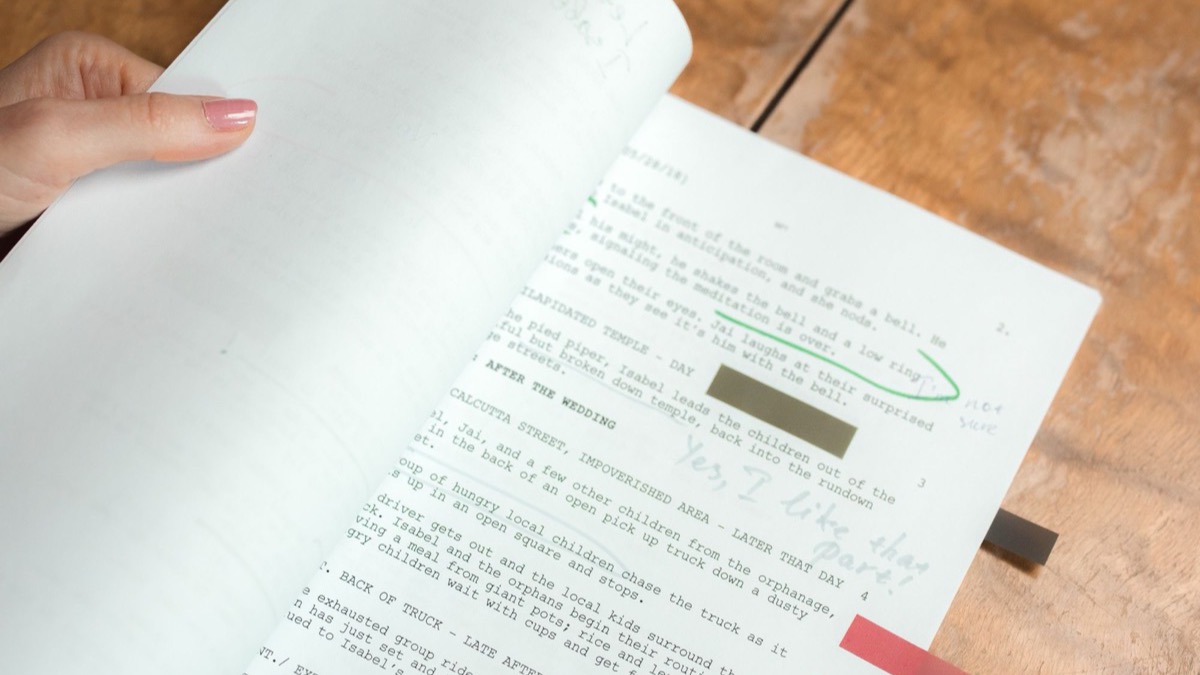 to the front of the room and grabs a bell. He
Isabel in anticipation, and she nods.
2.
his might, he shakes the bell and a low ring
signaling the meditation is over.
open their eyes. Jai laughs at their surprised
as they see it's him with the bell.
not
sure
TEMPLE - DAY
3
pied piper, Isabel leads the children out of the
but broken down temple, back into the rundown
streets.
Yes, I like that
part!
AFTER THE WEDDING
CALCUTTA STREET, IMPOVERISHED AREA - LATER THAT DAY
4
Jai, and a few other children from the orphanage,
in the back of an open pick up truck down a dusty
of hungry local children chase the truck as it
up in an open square and stops.
driver gets out and the local kids surround
Isabel and the orphans begin their
a meal from giant pots; rice and
children wait with cups and get
BACK OF TRUCK - LATE
exhausted group
has just set and
to Isabel's